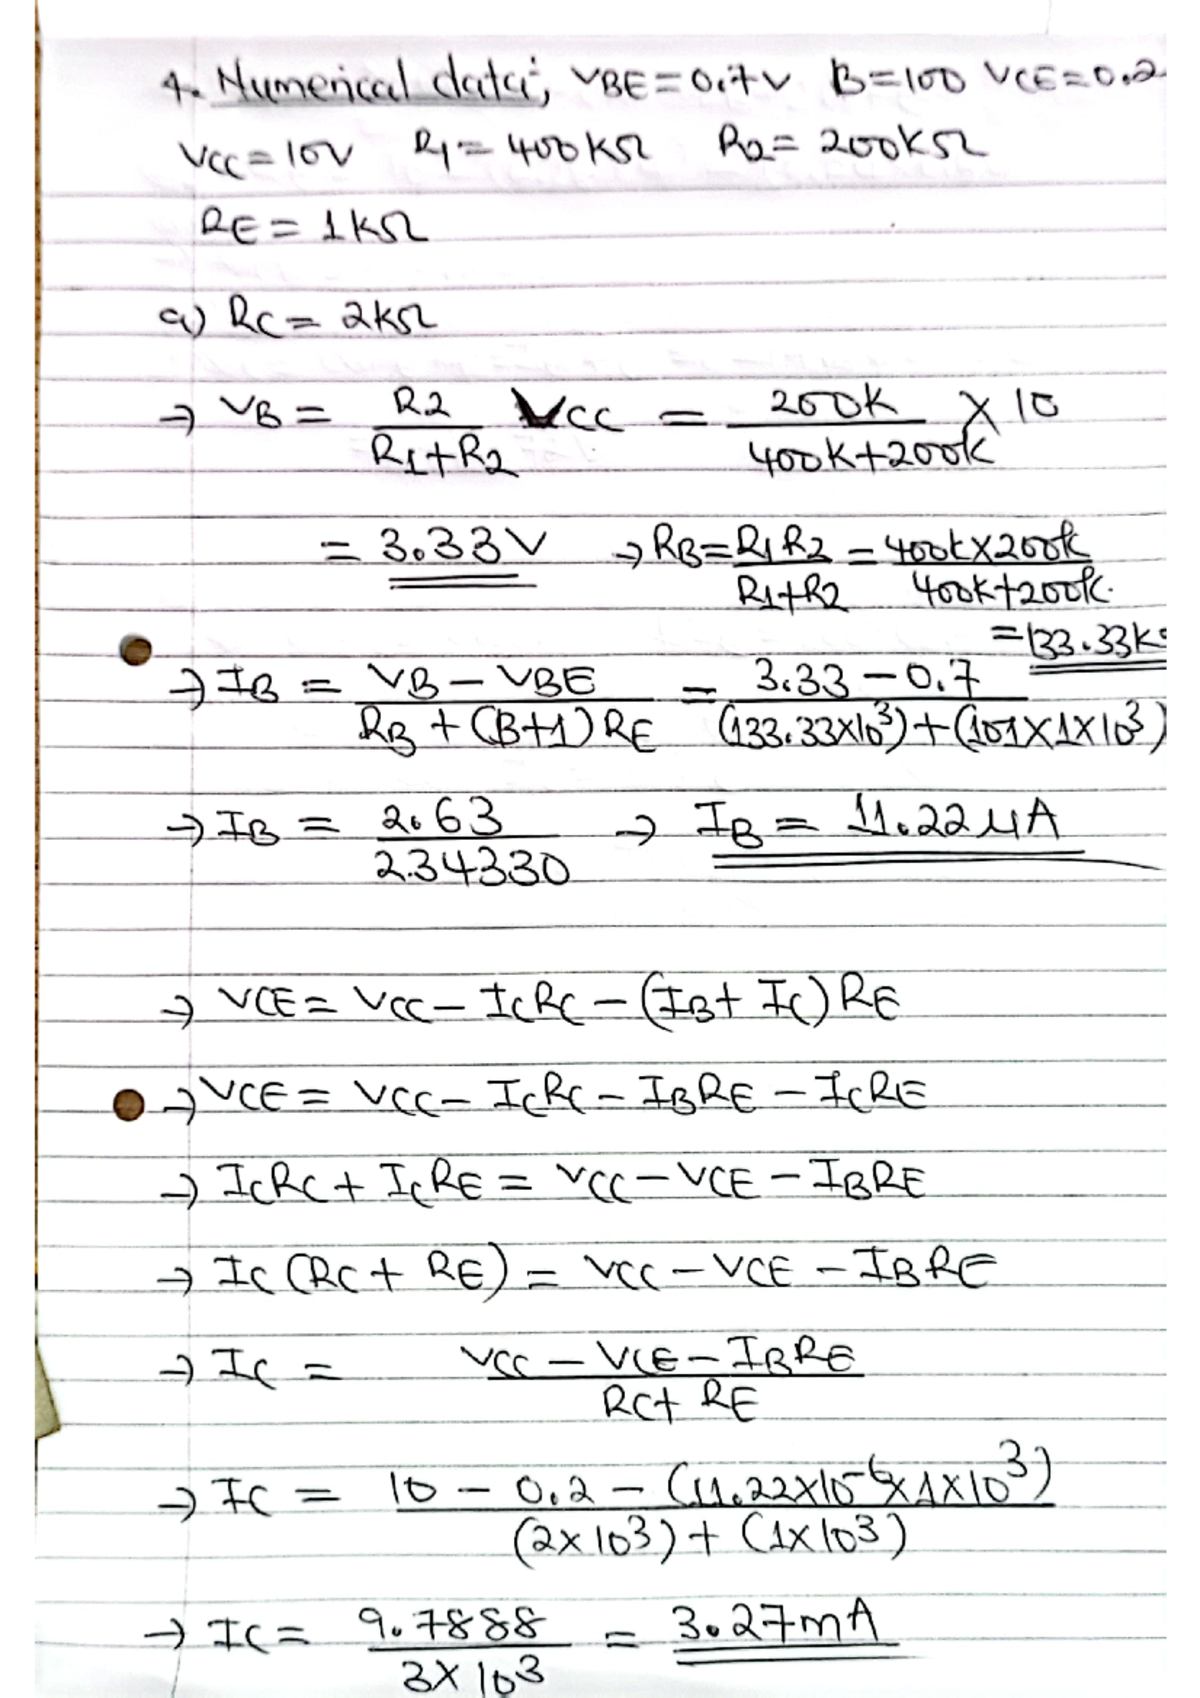 4. Numerical data; VBE=0.7V B=100 VCE=0.2
VCC=10V R1=400KΩ R2=200KΩ
RE=1KΩ
a) RC=2KΩ
→ VB = R2/R1+R2 VCC = 200K/400K+200K X 10
= 3.33V → RB=R1R2/R1+R2 = 400KX200K/400K+200K.
=133.33K
→ IB = VB-VBE/RB+(B+1)RE = 3.33-0.7/(133.33X10³)+(101X1X10³)
→ IB = 2.63/234330 → IB = 11.22μA
→ VCE = VCC-ICRC-(IB+IC)RE
→ VCE = VCC-ICRC-IBRE-ICRE
→ ICRC+ICRE = VCC-VCE-IBRE
→ IC(RC+RE) = VCC-VCE-IBRE
→ IC = VCC-VCE-IBRE/RC+RE
→ IC = 10-0.2-(11.22X10⁻⁶X1X10³)/(2X10³)+(1X10³)
→ IC = 9.7888/3X10³ = 3.27mA